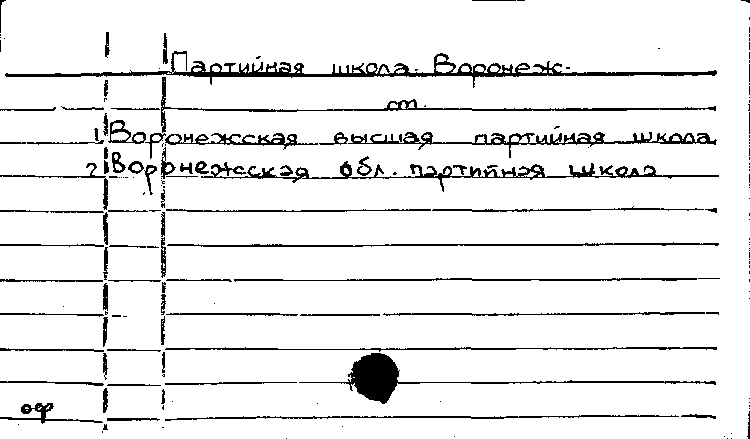 Партийная школа. Воронеж-
см.
1. Воронежсская высшая партийная школа
2. Воронежсская обл. партийная школа.
оф